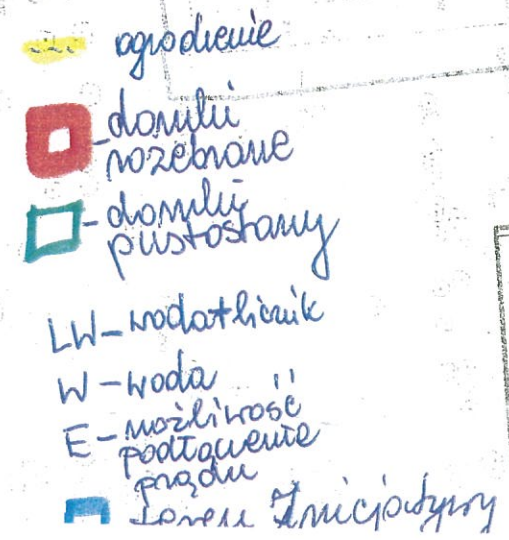 ogrodzenie
-domki
rozebrane
-domki
pustostany
LW-woda+licznik
W-woda
E-możliwość
podłączenia
prądu
- teren Inicjatywy